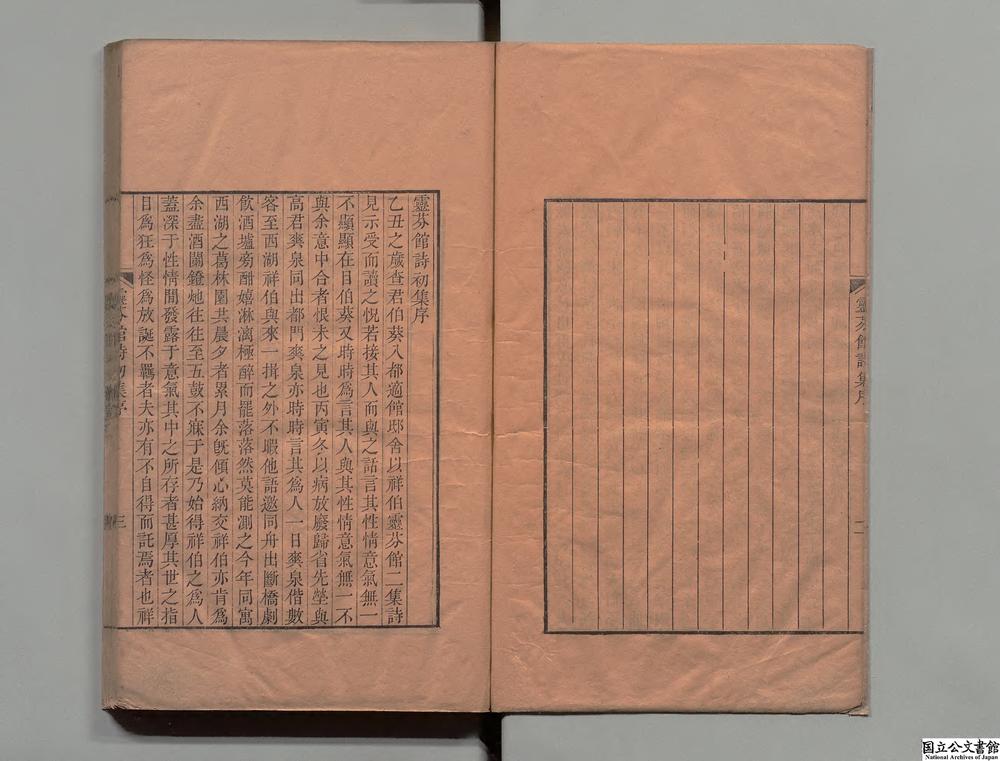 靈芬館詩集序
二
靈芬館詩初集序
乙丑之歲查君伯葵入都適館邸舍以祥伯靈芬館二集詩
見示受而讀之怳若接其人而與之話言其性情意氣無一
不顯顯在目伯葵又時時爲言其人與其性情意氣無一不
與余意中合者恨未之見也丙寅冬以病放廢歸省先塋與
高君爽泉同出都門爽泉亦時時言其爲人一日爽泉偕數
客至西湖祥伯與來一揖之外不暇他語邀同舟出斷橋劇
飲酒壚旁酣嬉淋漓極醉而罷落落然莫能測之今年同寓
西湖之葛林園共晨夕者累月余旣傾心納交祥伯亦肯爲
余盡酒闌鐙灺往往至五鼓不寐于是乃始得祥伯之爲人
蓋深于性情閒發露于意氣其中之所存者甚厚其世之指
目爲狂爲怪爲放誕不羈者夫亦有不自得而託焉者也祥
靈芬館詩初集序
三
国立公文書館
National Archives of Japan